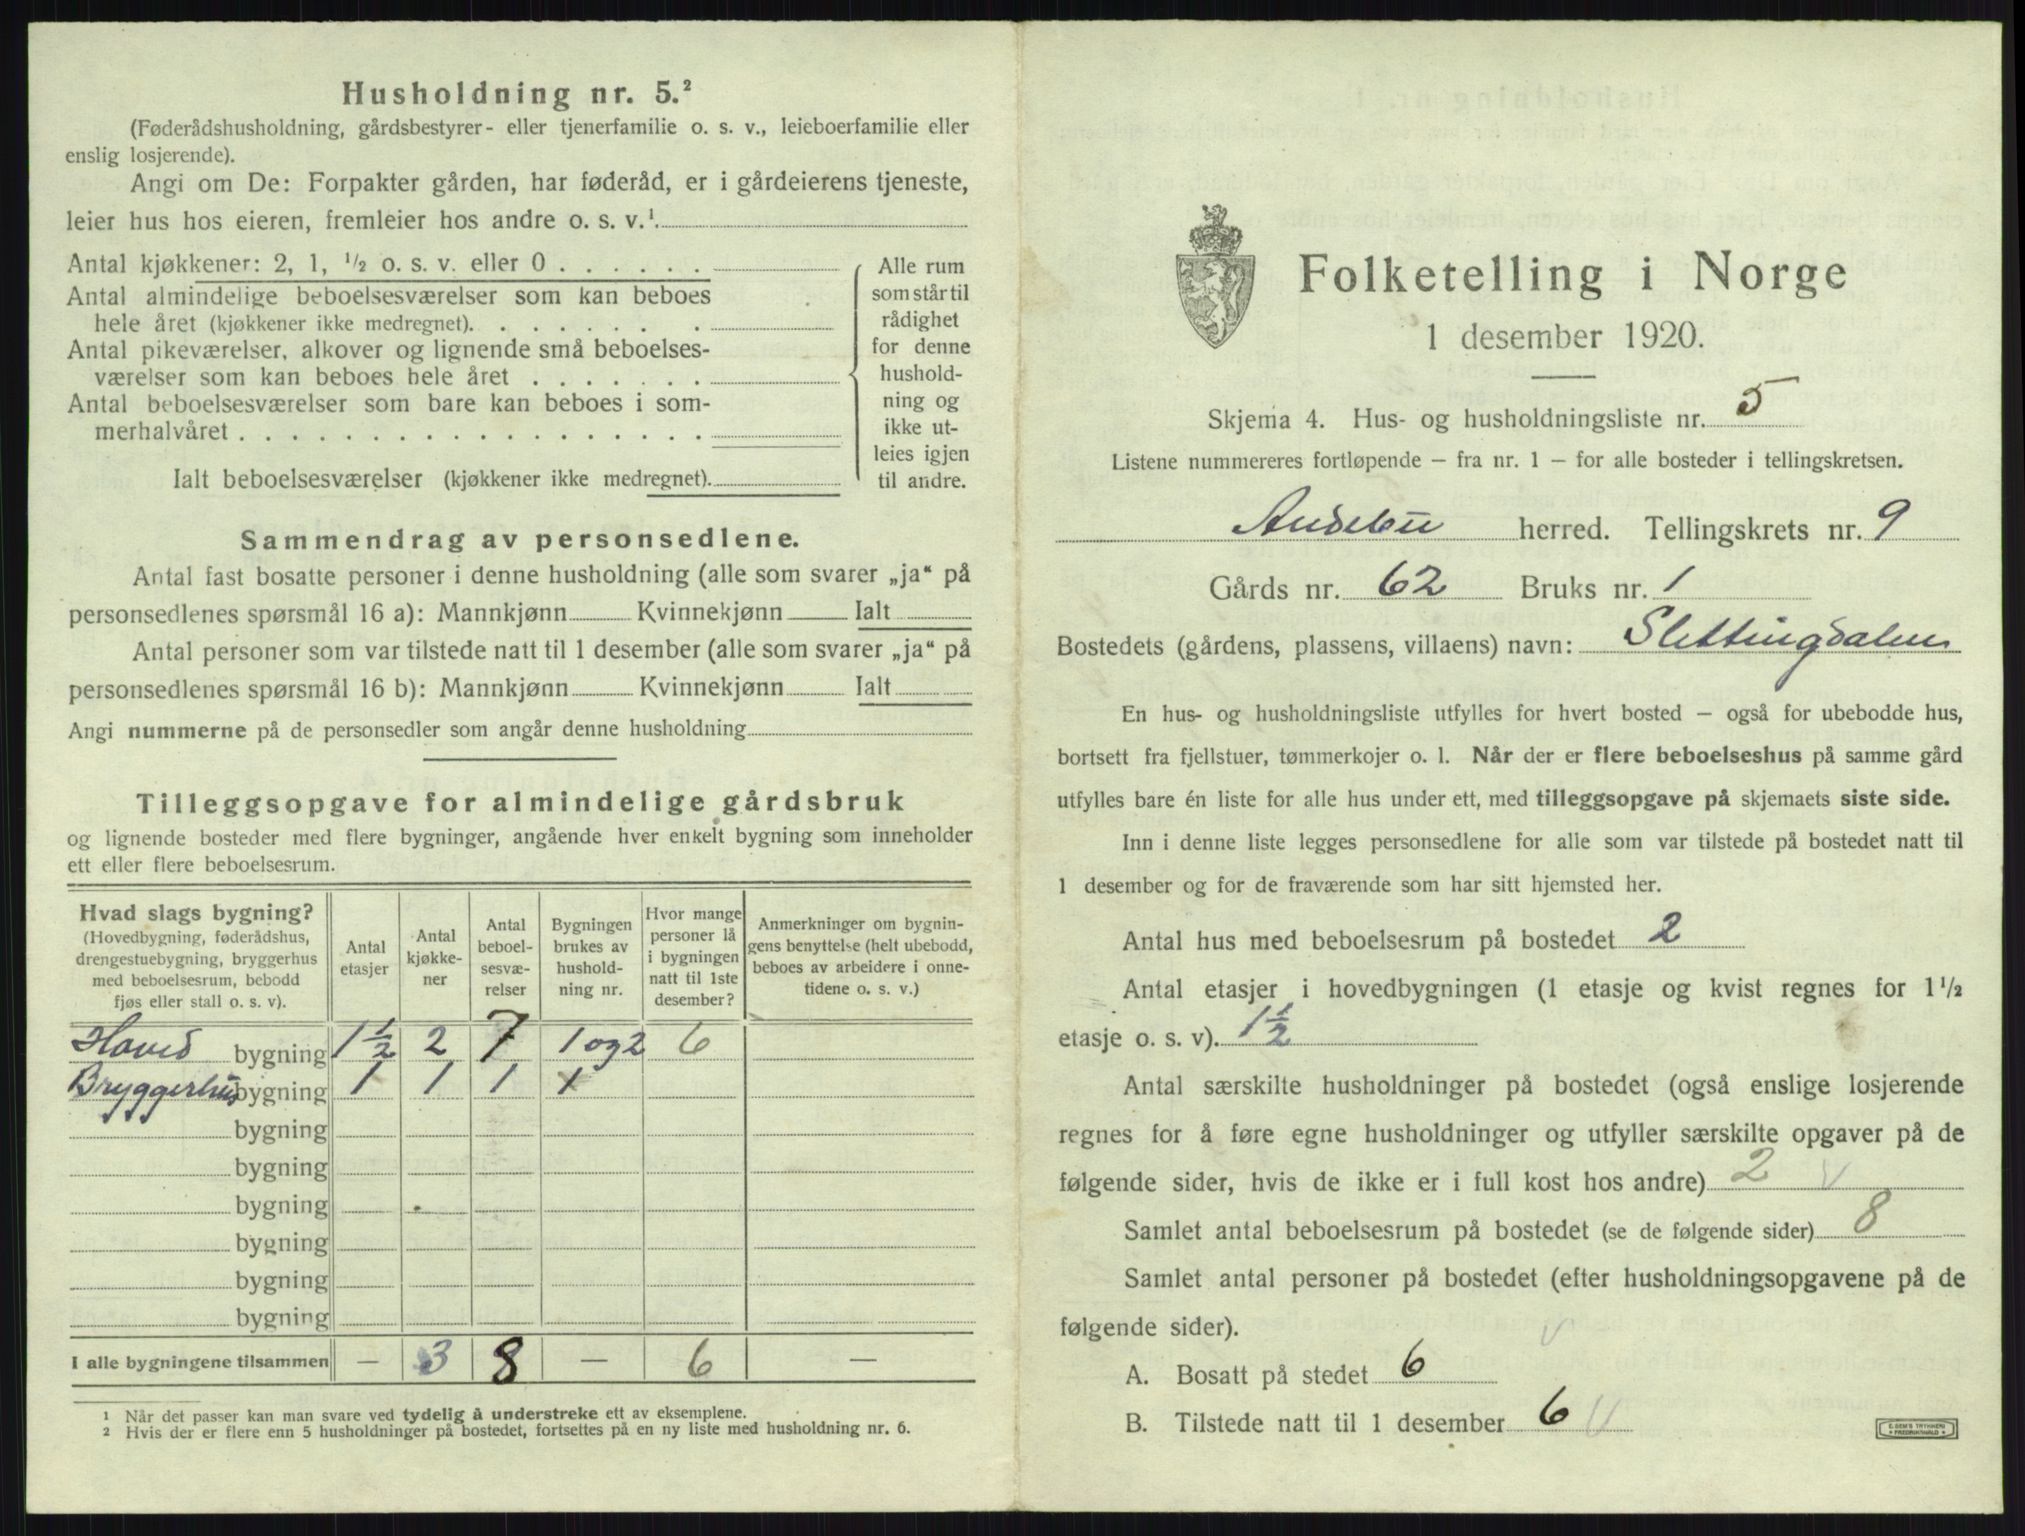 Husholdning nr. 5.²
(Føderådshusholdning, gårdsbestyrer- eller tjenerfamilie o. s. v., leieboerfamilie eller
enslig losjerende).
Angi om De: Forpakter gården, har føderåd, er i gårdeierens tjeneste,
leier hus hos eieren, fremleier hos andre o. s. v.¹.
Antal kjøkkener: 2, 1, ½ o. s. v. eller 0 . . . . . .
Antal almindelige beboelsesværelser som kan beboes
hele året (kjøkkener ikke medregnet). . . . . . . .
Antal pikeværelser, alkover og lignende små beboelses-
værelser som kan beboes hele året . . . . . . .
Antal beboelsesværelser som bare kan beboes i som-
merhalvåret . . . . . . . . . . . . . . . . . .
Ialt beboelsesværelser (kjøkkener ikke medregnet).
Alle rum
som står til
rådighet
for denne
hushold-
ning og
ikke ut-
leies igjen
til andre.
Sammendrag av personsedlene.
Antal fast bosatte personer i denne husholdning (alle som svarer „ja“ på
personsedlenes spørsmål 16 a): Mannkjønn Kvinnekjønn Ialt
Antal personer som var tilstede natt til 1 desember (alle som svarer „ja“ på
personsedlenes spørsmål 16 b): Mannkjønn Kvinnekjønn Ialt
Angi nummerne på de personsedler som angår denne husholdning
Tilleggsopgave for almindelige gårdsbruk
og lignende bosteder med flere bygninger, angående hver enkelt bygning som inneholder
ett eller flere beboelsesrum.
Hvad slags bygning?
(Hovedbygning, føderådshus,
drengestuebygning, bryggerhus
med beboelsesrum, bebodd
fjøs eller stall o. s. v).
Antal
etasjer
Antal
kjøkke-
ner
Antal
beboel-
sesvæ-
relser
Bygningen
brukes av
hushold-
ning nr.
Hvor mange
personer lå
i bygningen
natt til 1ste
desember?
Anmerkninger om bygnin-
gens benyttelse (helt ubebodd,
beboes av arbeidere i onne-
tidene o. s. v.)
Hoved bygning 1½ 2 7 1 og 2 6
Bryggerhus bygning 1 1 1 1
bygning
bygning
bygning
bygning
bygning
bygning
I alle bygningene tilsammen — 3 8 — 6 —
¹ Når det passer kan man svare ved tydelig å understreke ett av eksemplene.
² Hvis der er flere enn 5 husholdninger på bostedet, fortsettes på en ny liste med husholdning nr. 6.
Folketelling i Norge
1 desember 1920.
Skjema 4. Hus- og husholdningsliste nr. 5
Listene nummereres fortløpende — fra nr. 1 — for alle bosteder i tellingskretsen.
Andebu herred. Tellingskrets nr. 9
Gårds nr. 62 Bruks nr. 1
Bostedets (gårdens, plassens, villaens) navn: Slettingdalen
En hus- og husholdningsliste utfylles for hvert bosted — også for ubebodde hus,
bortsett fra fjellstuer, tømmerkojer o. l. Når der er flere beboelseshus på samme gård
utfylles bare én liste for alle hus under ett, med tilleggsopgave på skjemaets siste side.
Inn i denne liste legges personsedlene for alle som var tilstede på bostedet natt til
1 desember og for de fraværende som har sitt hjemsted her.
Antal hus med beboelsesrum på bostedet 2
Antal etasjer i hovedbygningen (1 etasje og kvist regnes for 1½
etasje o. s. v). 1½
Antal særskilte husholdninger på bostedet (også enslige losjerende
regnes for å føre egne husholdninger og utfyller særskilte opgaver på de
følgende sider, hvis de ikke er i full kost hos andre) 2
Samlet antal beboelsesrum på bostedet (se de følgende sider) 8
Samlet antal personer på bostedet (efter husholdningsopgavene på de
følgende sider).
A. Bosatt på stedet 6
B. Tilstede natt til 1 desember 6